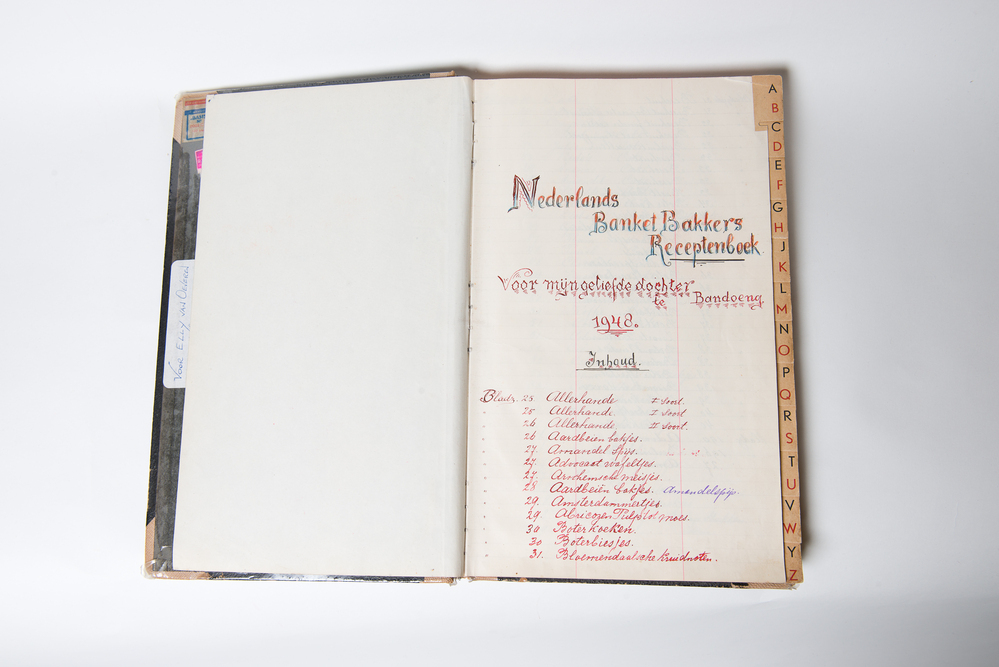 Voor Elly van
Nederlands
Banket Bakkers
Receptenboek
Voor mijn geliefde dochter
te Bandoeng.
1948.
Inhoud.
Bladz. 25 Allerhande I soort.
" 25 Allerhande. I soort
" 26 Allerhande. II soort.
" 26 Aardbeien bakjes.
" 27. Amandel spijs.
" 27. Advocaat wafeltjes.
" 27. Arnhemsche meisjes.
" 28 Aardbeiën bakjes. Amandelspijs.
" 29. Amsterdammertjes.
" 29. Abricozen Pulp tot moes.
" 30 Boterkoeken.
" 30 Boterbiesjes.
" 31. Bloemendaalsche Kruidnoten.
A
B
C
D
E
F
G
H
J
K
L
M
N
O
P
Q
R
S
T
U
V
W
Y
Z